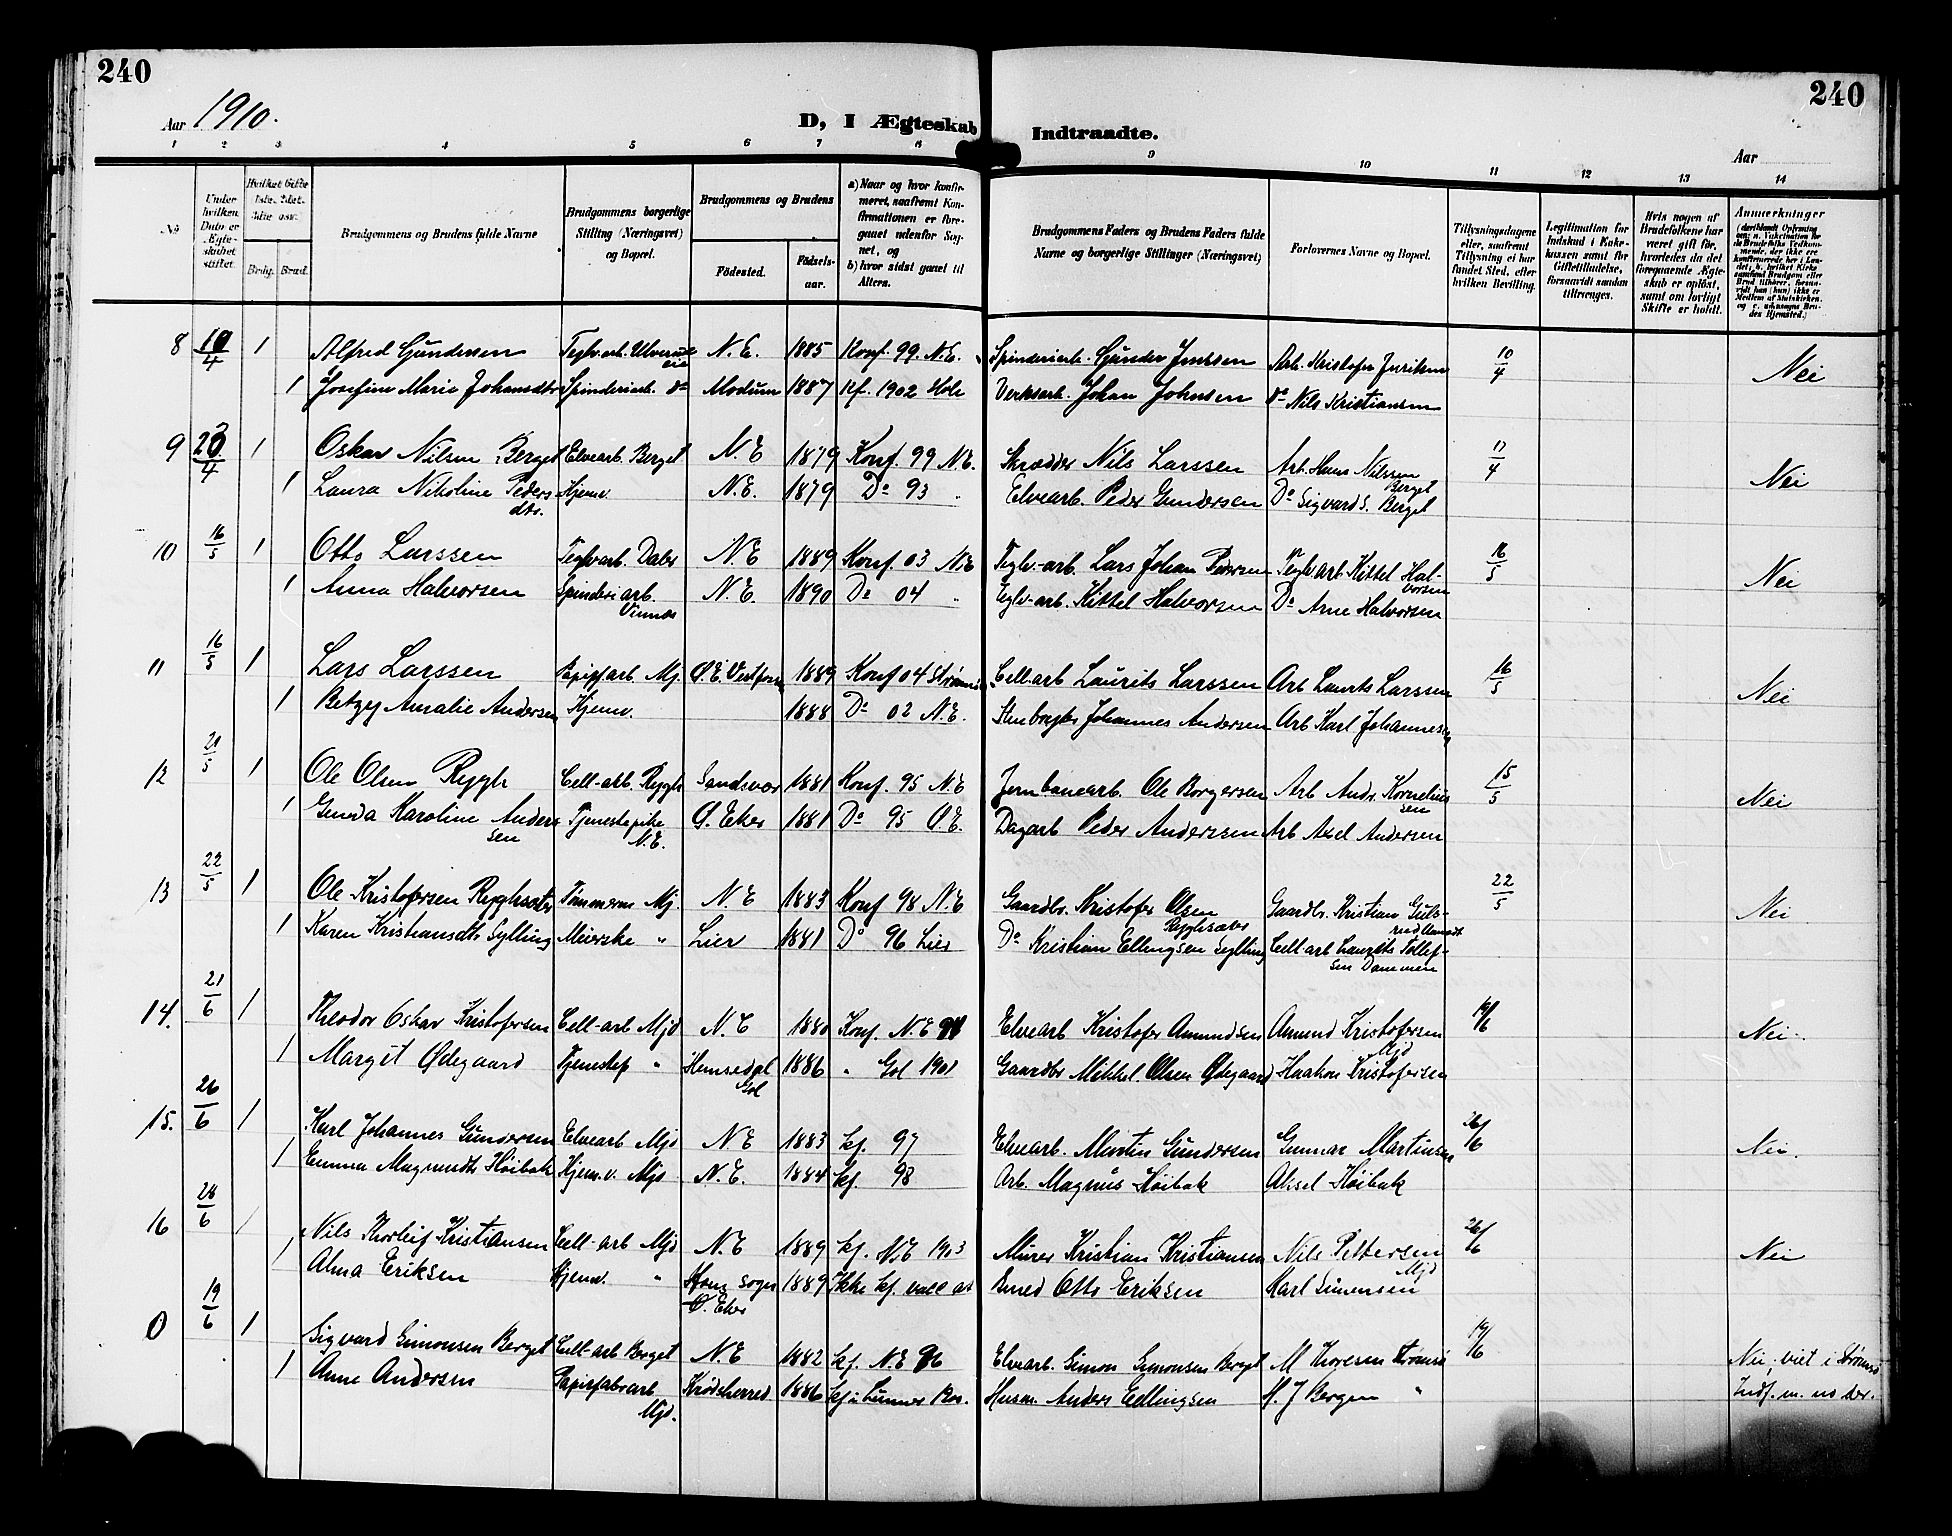 240
240
Aar 1910.
D, I Ægteskab Indtraadte.
Aar
1 2 3 4 5 6 7 8 9 10 11 12 13 14
No
Under hvilken Dato er Ægteskabet stiftet.
Hvilket Gifte
Brdg. Brud.
Brudgommens og Brudens fulde Navne
Brudgommens borgerlige Stilling (Næringsvei) og Bopæl.
Brudgommens og Brudens
Födested.
Födselsaar.
a) Naar og hvor konfirmeret, saafremt Konfirmationen er foregaaet udenfor Sognet, og
b) hvor sidst gaaet til Alters.
Brudgommens Faders og Brudens Faders fulde Navne og borgerlige Stillinger (Næringsvei)
Forlovernes Navne og Bopæl.
Tillysningsdagene eller, saafremt Tillysning ei har fundet Sted, efter hvilken Bevilling.
Legitimation for Indskud i Enkekassen samt for Giftetilladelse, forsaavidt saadan tiltrænges.
Hvis nogen af Brudefolkene har været gift før, hvorledes da det foregaaende Ægteskab er oplöst, samt om lovligt Skifte er holdt.
Anmærkninger
8 10/4 1 Alfred Gundersen Teglv.arb. Ulverud N.E. 1885 Konf. 99 N.E. Spinderiarb. Gunder Jenssen Arb. Kristofer 10/4
1 Josefine Marie Johansdtr Spinderiarb. do Modum 1887 Kf. 1902 Hole Verksarb. Johan Johnsen do Nils Kristiansen Nei
9 /4 1 Oskar Nilsen Berget Elvearb. Berget N.E 1879 Konf. 99 N.E. Skrædder Nils Larssen Arb. Hans Nilssen Berget 17/4
1 Laura Nikoline Pedersdtr. Hjemv. N.E. 1879 Do 93 " Elvearb. Peder Gundersen Do Sigvard S. Berget Nei
10 16/5 1 Otto Larssen Teglvarb. Daler N.E 1889 Konf. 03 N.E Teglv.-arb. Lars Johan Pedersen Teglv.arb. Kittel Halvorsen 16/5
1 Anna Halvorsen Spinderiarb. Vinnes N.E. 1890 Do 04 " Teglv-arb. Kittel Halvorsen Do Arne Halvorsen Nei
11 16/5 1 Lars Larssen Papirfarb. Mj. Ø.E. Vestfossen 1889 Konf 04 Strømmen Cell-arb Laurits Larssen Arb Laurits Larssen 16/5
1 Betzy Amalie Andersen Hjemv. 1888 Do 02 N.E. Johannes Andersen Arb Karl Johannesen Nei
12 21/5 1 Ole Olsen Rygh Cell-arb. Rygh Sandsvær 1881 Konf. 95 N.E Jernbanearb. Ole Borgersen Arb Andr. Korneliussen 15/5
1 Karoline Anderssen Tjenestepike N.E. Ø. Eker 1881 Do 95 Ø.E. Dagarb Peder Anderssen Arb Axel Andersen Nei
13 22/5 1 Ole Kristofersen Ryghsæter Tømmerm Mj. N.E 1883 Konf 98 N.E Gaardbr. Kristofer Olsen Ryghsæter Gaardbr. Kristian 22/5
1 Karen Kristiansdtr Sylling Meierske " Lier 1881 Do 96 Lier Do Kristian Ellingsen Sylling Cell-arb Laurits Tollefsen Dammen Nei
14. 21/6 1 Theodor Oskar Kristofersen Cell-arb Mjd N.E 1880 Konf. N.E Elvearb Kristofer Amundsen Amund Kristofersen Mjd 19/6
1 Margit Ødegaard Tjenestep " Hemsedal Gol 1886 " Gol 1901 Gaardbr Mikkel Olsen Ødegaard Haakon Kristofersen Nei.
15. 26/6 1 Karl Johannes Gundersen Elvearb Mjd N.E 1883 kf. 97 Elvearb. Martin Gundersen Gunnar Martinsen 26/6
1 Emma Magnusdtr Höibak Hjem.v. Mjd N.E. 1884 kf. 98 Arb. Magnus Höibak Aksel Höibak Nei.
16 26/6 1 Nils Thorleif Kristiansen Cell-arb Mjd N.E 1889 kf. N.E 1903 Murer Kristian Kristiansen Nils Pettersen Mjd 26/6
1 Alma Eriksen Hjemv. " sogn Ø. Eker 1889 Ikke kf. vacc at Otto Eriksen Karl Simensen Nei
0 19/6 1 Sigvard Simonsen Berget Cell-arb Berget N.E 1882 kf. N.E 96 Elvearb. Simon Simonsen Berget M Thoresen Strømsø 19/6
1 Anne Andersen Papirfabrarb Mjd. Krødsherred 1886 kf i Lunner Husm. Anders Ellingsen H. J Bergen " Nei. viet i Strømsø
Indf. u. no der.